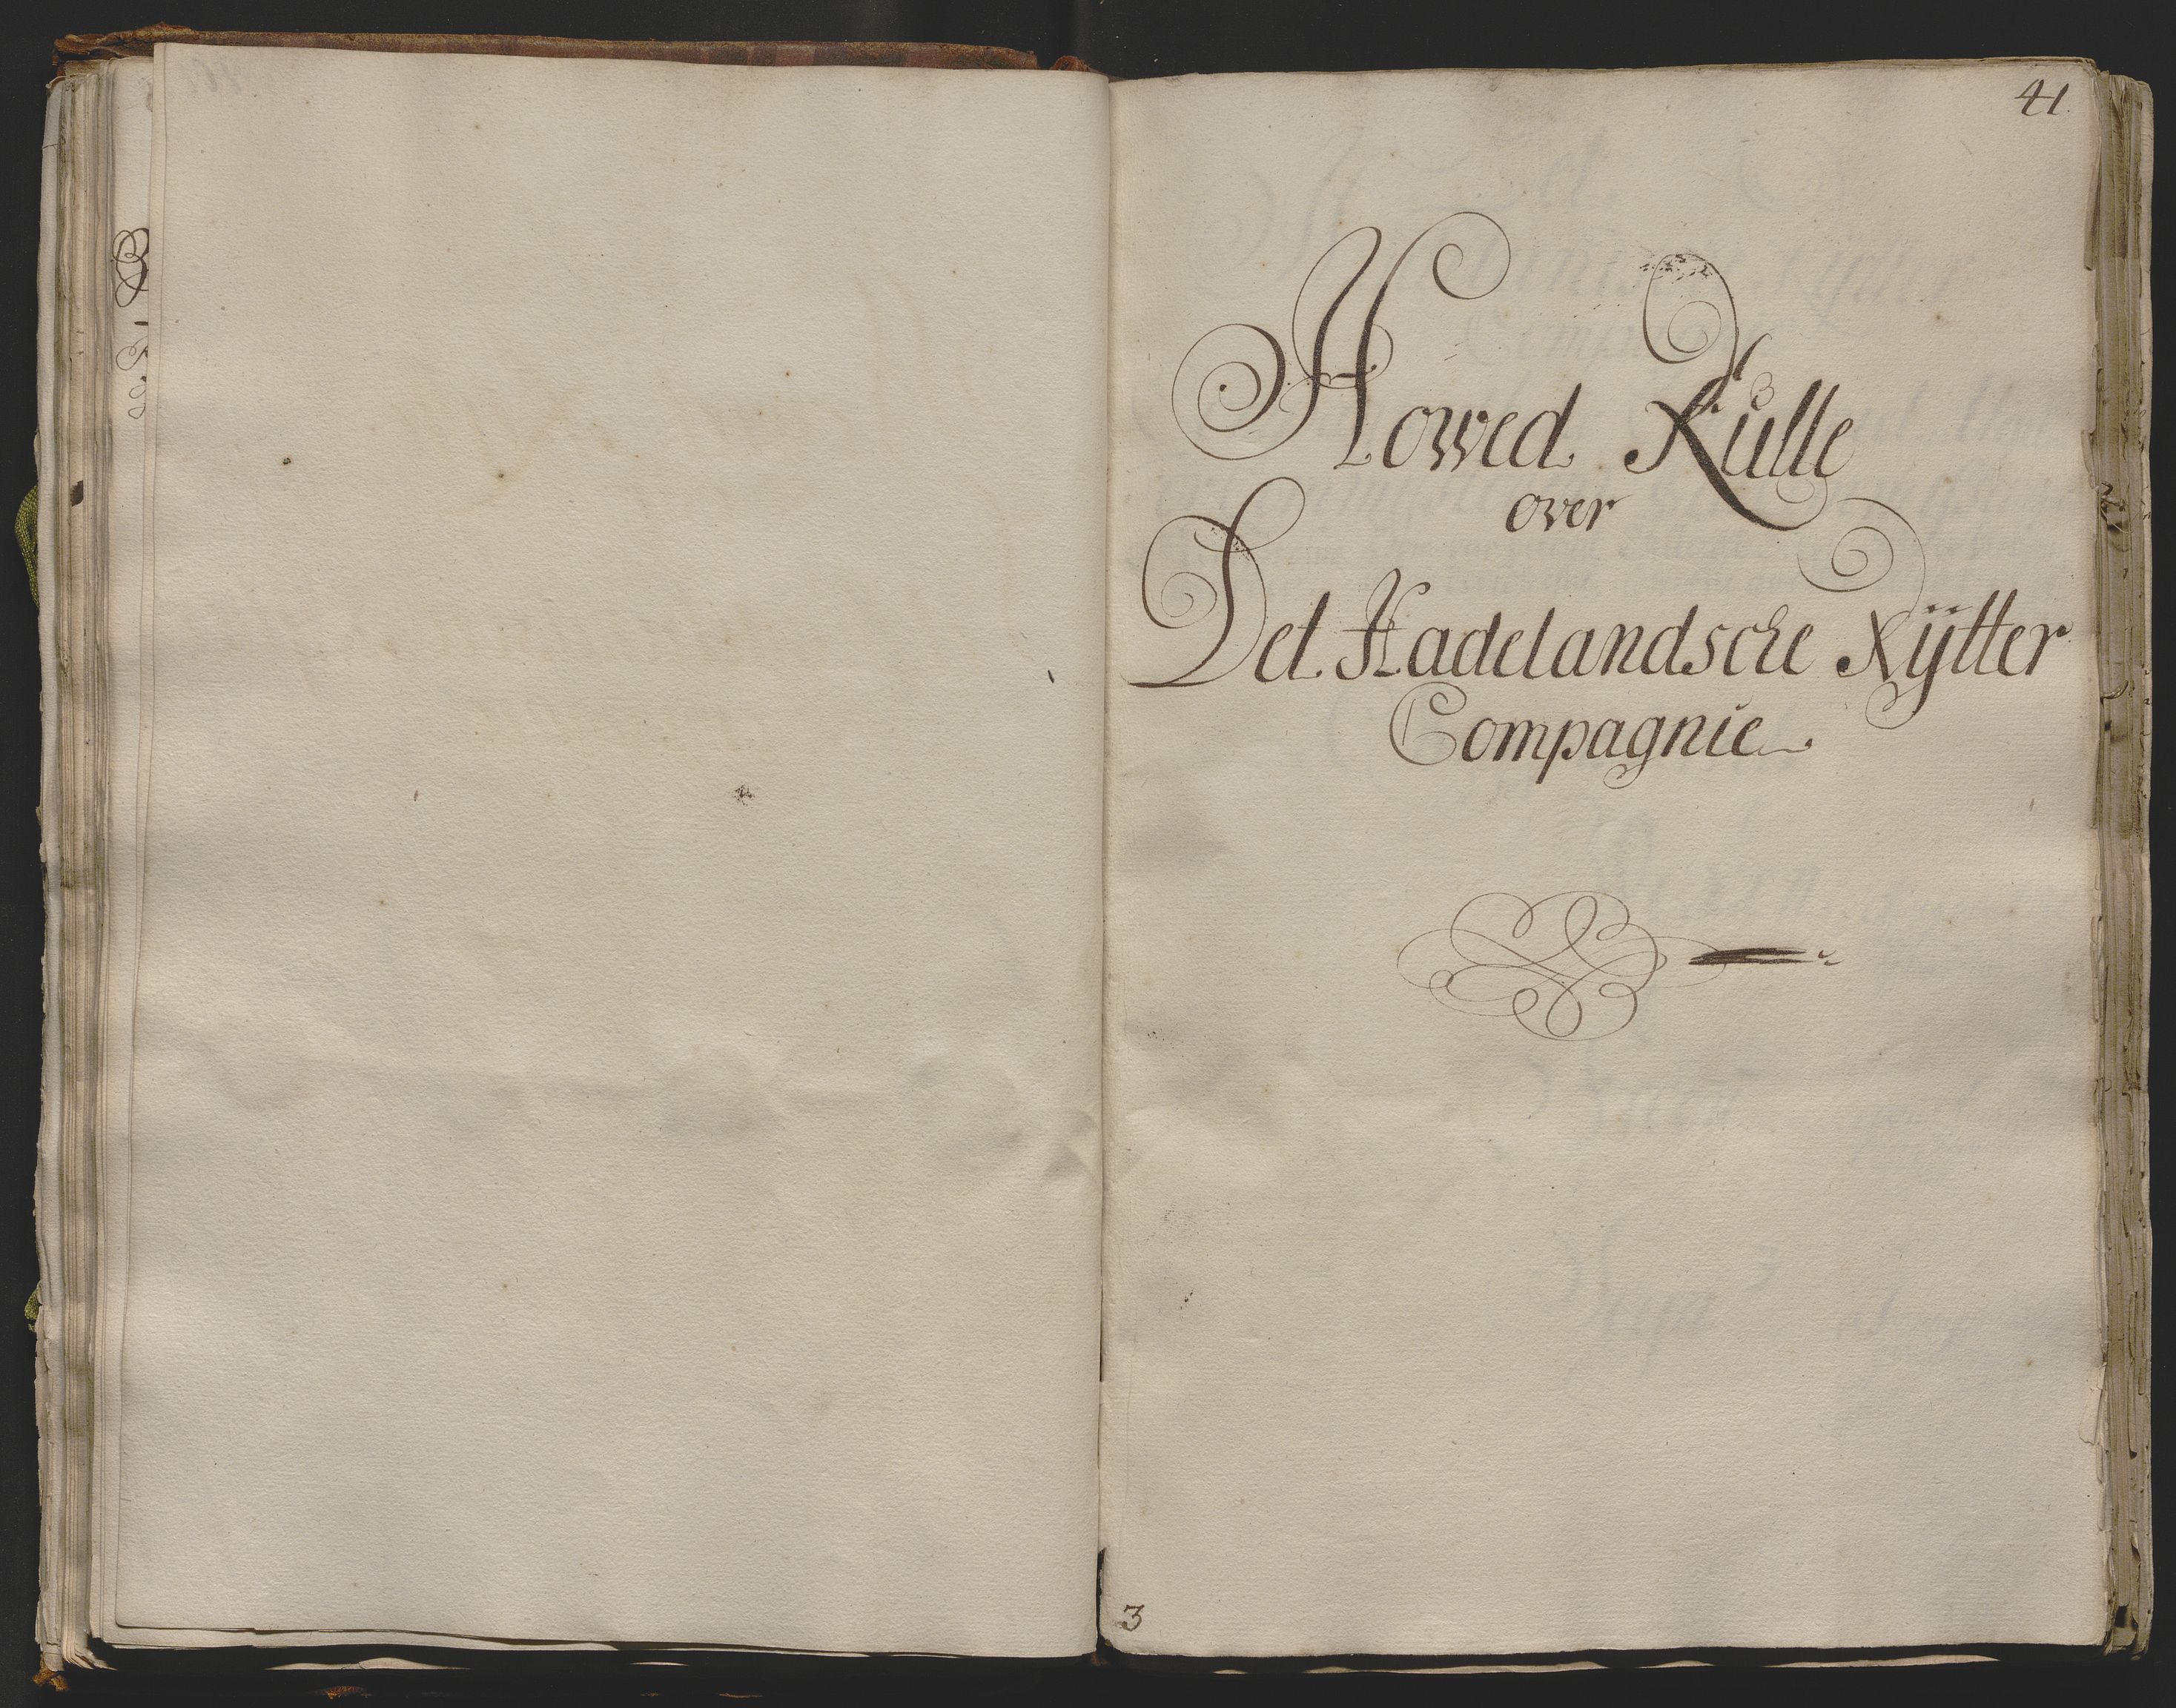 41
Howed Rulle
over
Det Hadelandsche Rÿtter
Compagnie
3